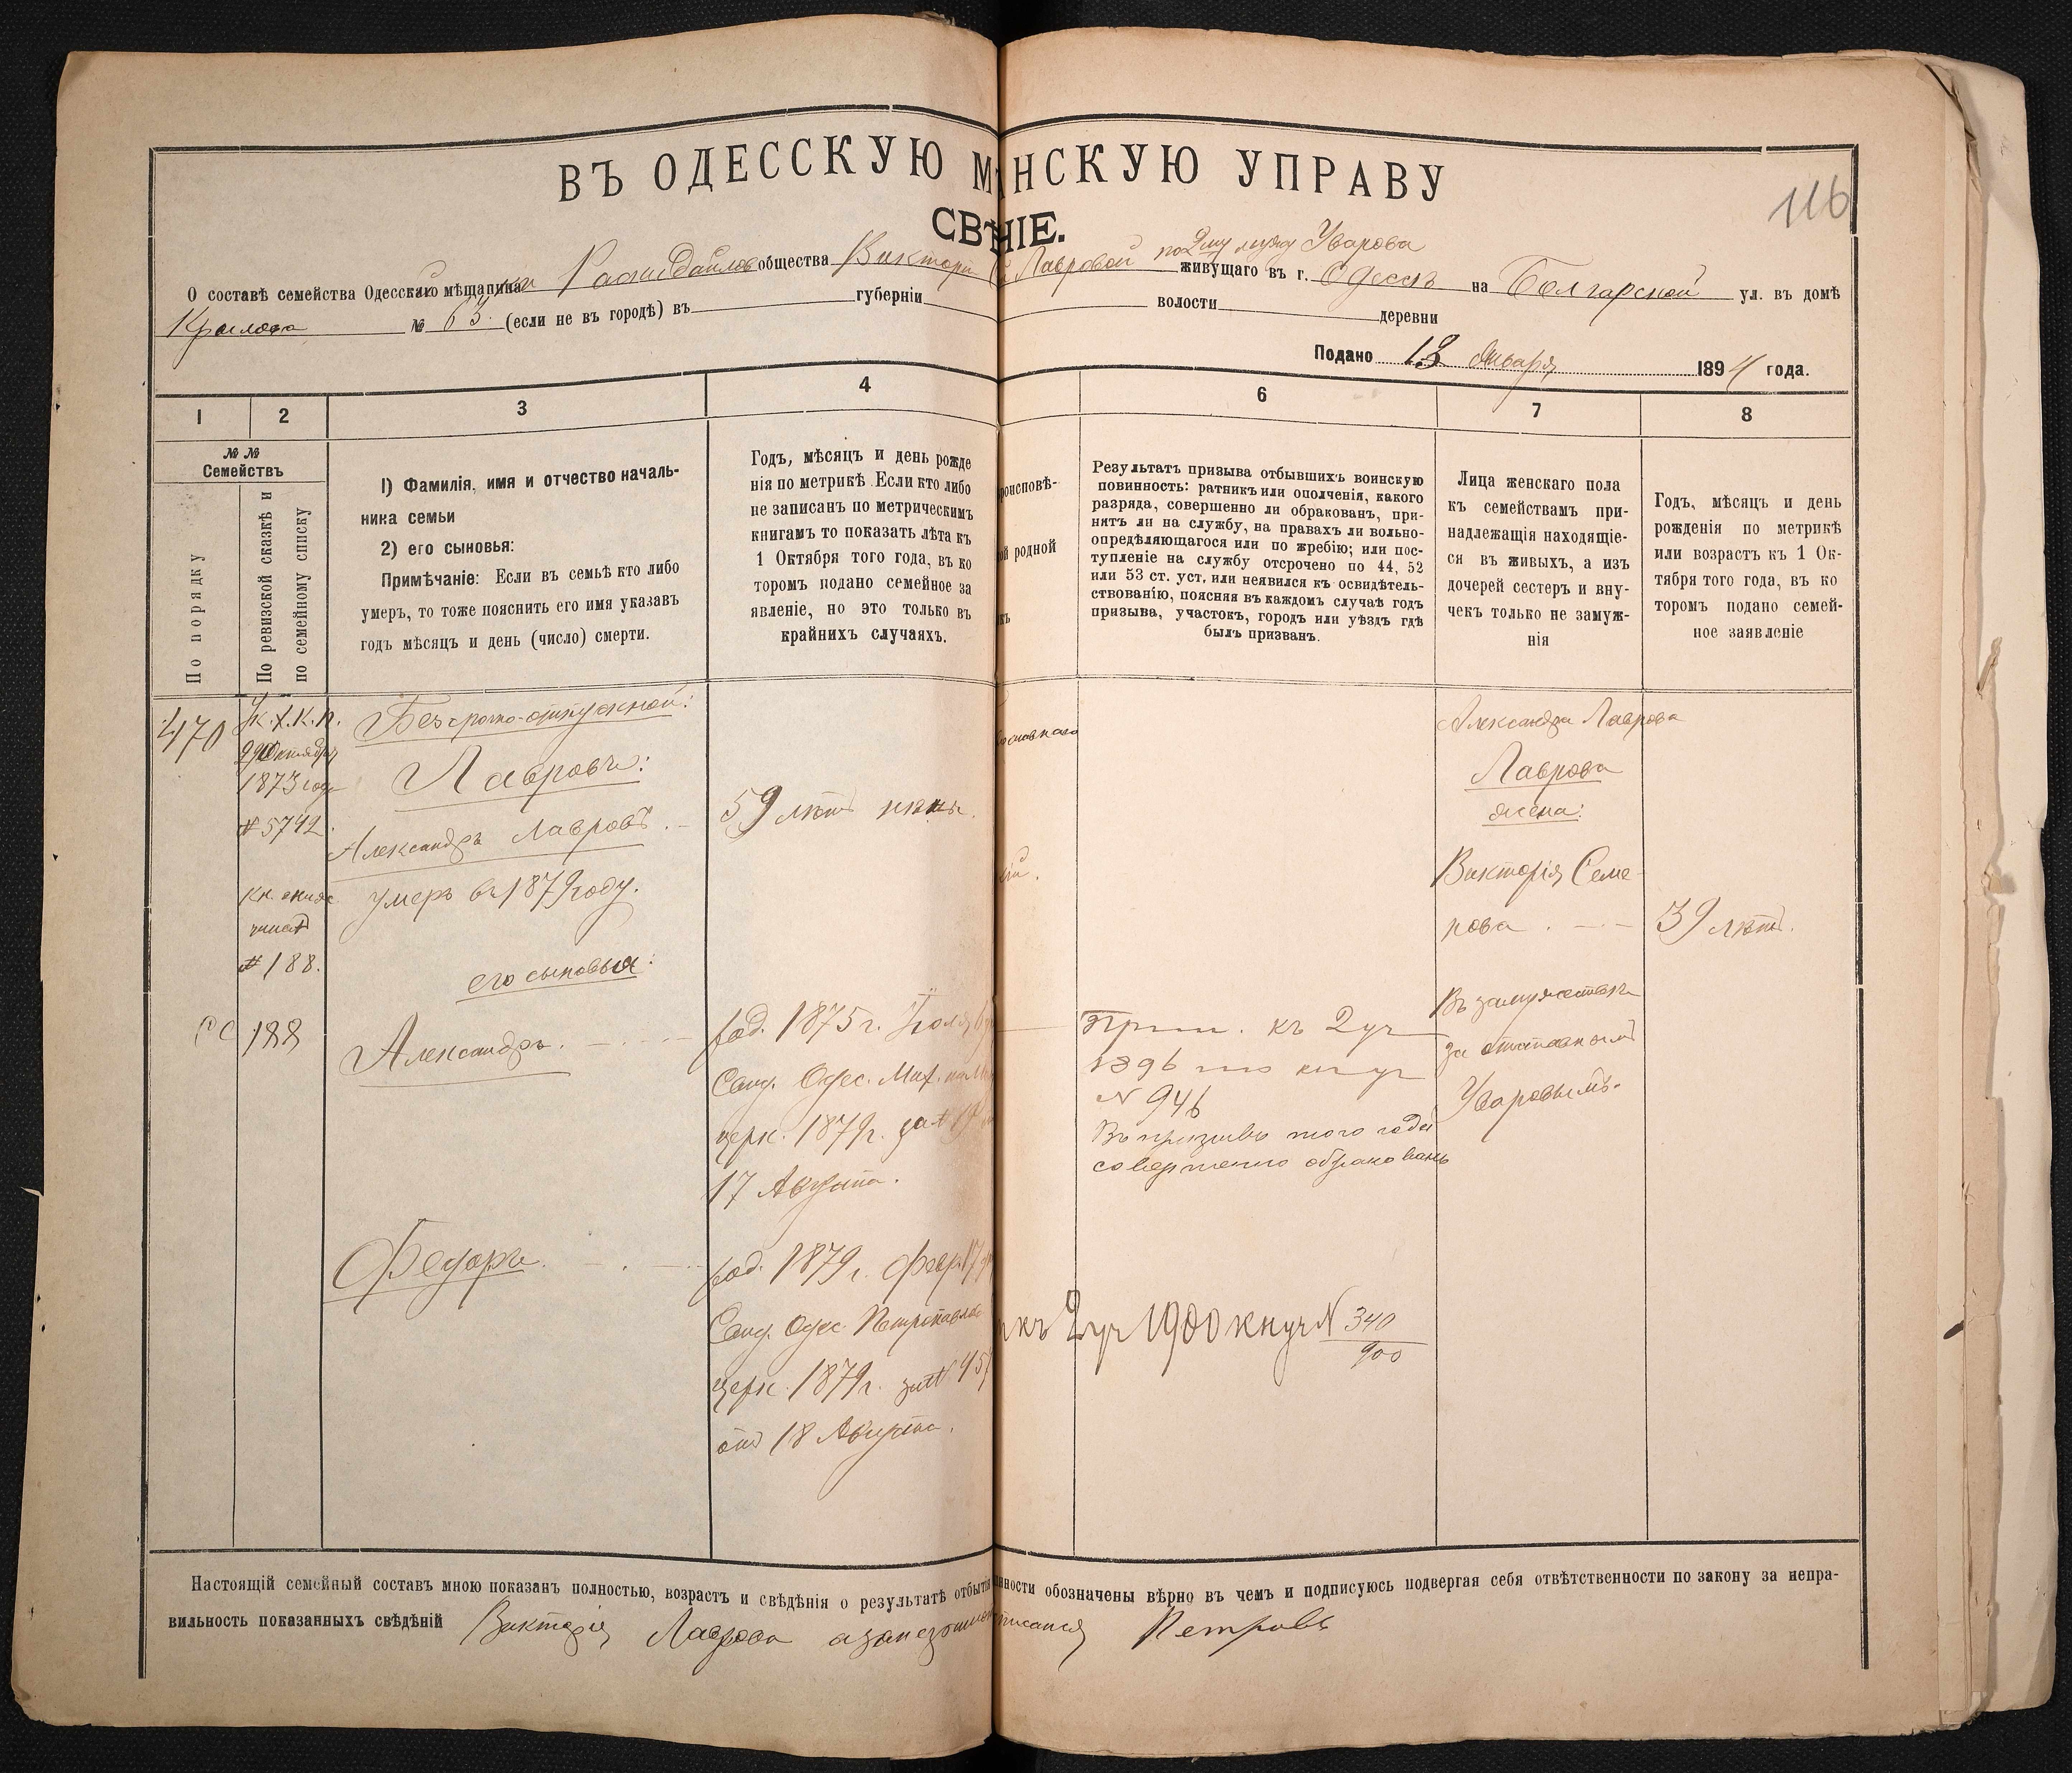 116
ВЪ ОДЕССКУЮ М НСКУЮ УПРАВУ
СВѢ НІЕ.
О составѣ семейства Одесскаго мѣщанина общества Викторі Лавровой по 2му мужу Уварова живущаго въ г. Одессѣ на Болгарской ул. въ домѣ
Крылова № 65 (если не въ городѣ) въ губерніи волости деревни
Подано 13 Января 1894 года.
1 2 3 4 6 7 8
№№ Семействъ
По порядку
По ревизской сказкѣ и по семейному списку
1) Фамилія, имя и отчество началь-
ника семьи
2) его сыновья:
Примѣчаніе: Если въ семьѣ кто либо
умеръ, то тоже пояснить его имя указавъ
годъ мѣсяцъ и день (число) смерти.
Годъ, мѣсяцъ и день рожде
нія по метрикѣ. Если кто либо
не записанъ по метрическимъ
книгамъ то показать лѣта къ
1 Октября того года, въ ко
торомъ подано семейное за
явленіе, но это только въ
крайнихъ случаяхъ.
роисповѣ-
ой родной
Результатъ призыва отбывшихъ воинскую
повинность: ратникъ или ополченія, какого
разряда, совершенно ли обракованъ, при-
нятъ ли на службу, на правахъ ли вольно-
опредѣляющагося или по жребію; или пос-
тупленіе на службу отсрочено по 44, 52
или 53 ст. уст. или неявился къ освидѣтель-
ствованію, поясняя въ каждомъ случаѣ годъ
призыва, участокъ, городъ или уѣздъ гдѣ
былъ призванъ.
Лица женскаго пола
къ семействамъ при-
надлежащія находящіе-
ся въ живыхъ, а изъ
дочерей сестеръ и вну-
чекъ только не замуж-
нія
Годъ, мѣсяцъ и день
рожденія по метрикѣ
или возрастъ къ 1 Ок-
тября того года, въ ко
торомъ подано семей-
ное заявленіе
470
Октября
1873 года
№ 5742.
№ 188.
188
Безсрочно-отпускной:
Лавровъ:
Александръ Лавровъ.
умеръ въ 1879 году.
его сыновья:
Александръ.
Федоръ.
59 лѣтъ
род. 1875 г. Іюля
Свид. Одес. Мих.
церк. 1879 г. за №
17 Августа.
род. 1879 г. Февр. 17
Свид. Одес. Петропавлов
церк. 1879 г. за № 45
отъ 18 Августа.
Прип. къ 2 уч
1896 по кн уч
№ 946
Въ призывъ того года
совершенно обракованъ
къ 2 уч 1900 кн уч № 340/900
Александра Лаврова
Лаврова
жена:
Викторія Семе-
нова
39 лѣтъ.
Въ замужествѣ
за отставнымъ
Уваровымъ.
Настоящій семейный составъ мною показанъ полностью, возрастъ и свѣдѣнія о результатѣ отбытія нности обозначены вѣрно въ чемъ и подписуюсь подвергая себя отвѣтственности по закону за непра-
вильность показанныхъ свѣдѣній Викторія Лаврова Петровъ